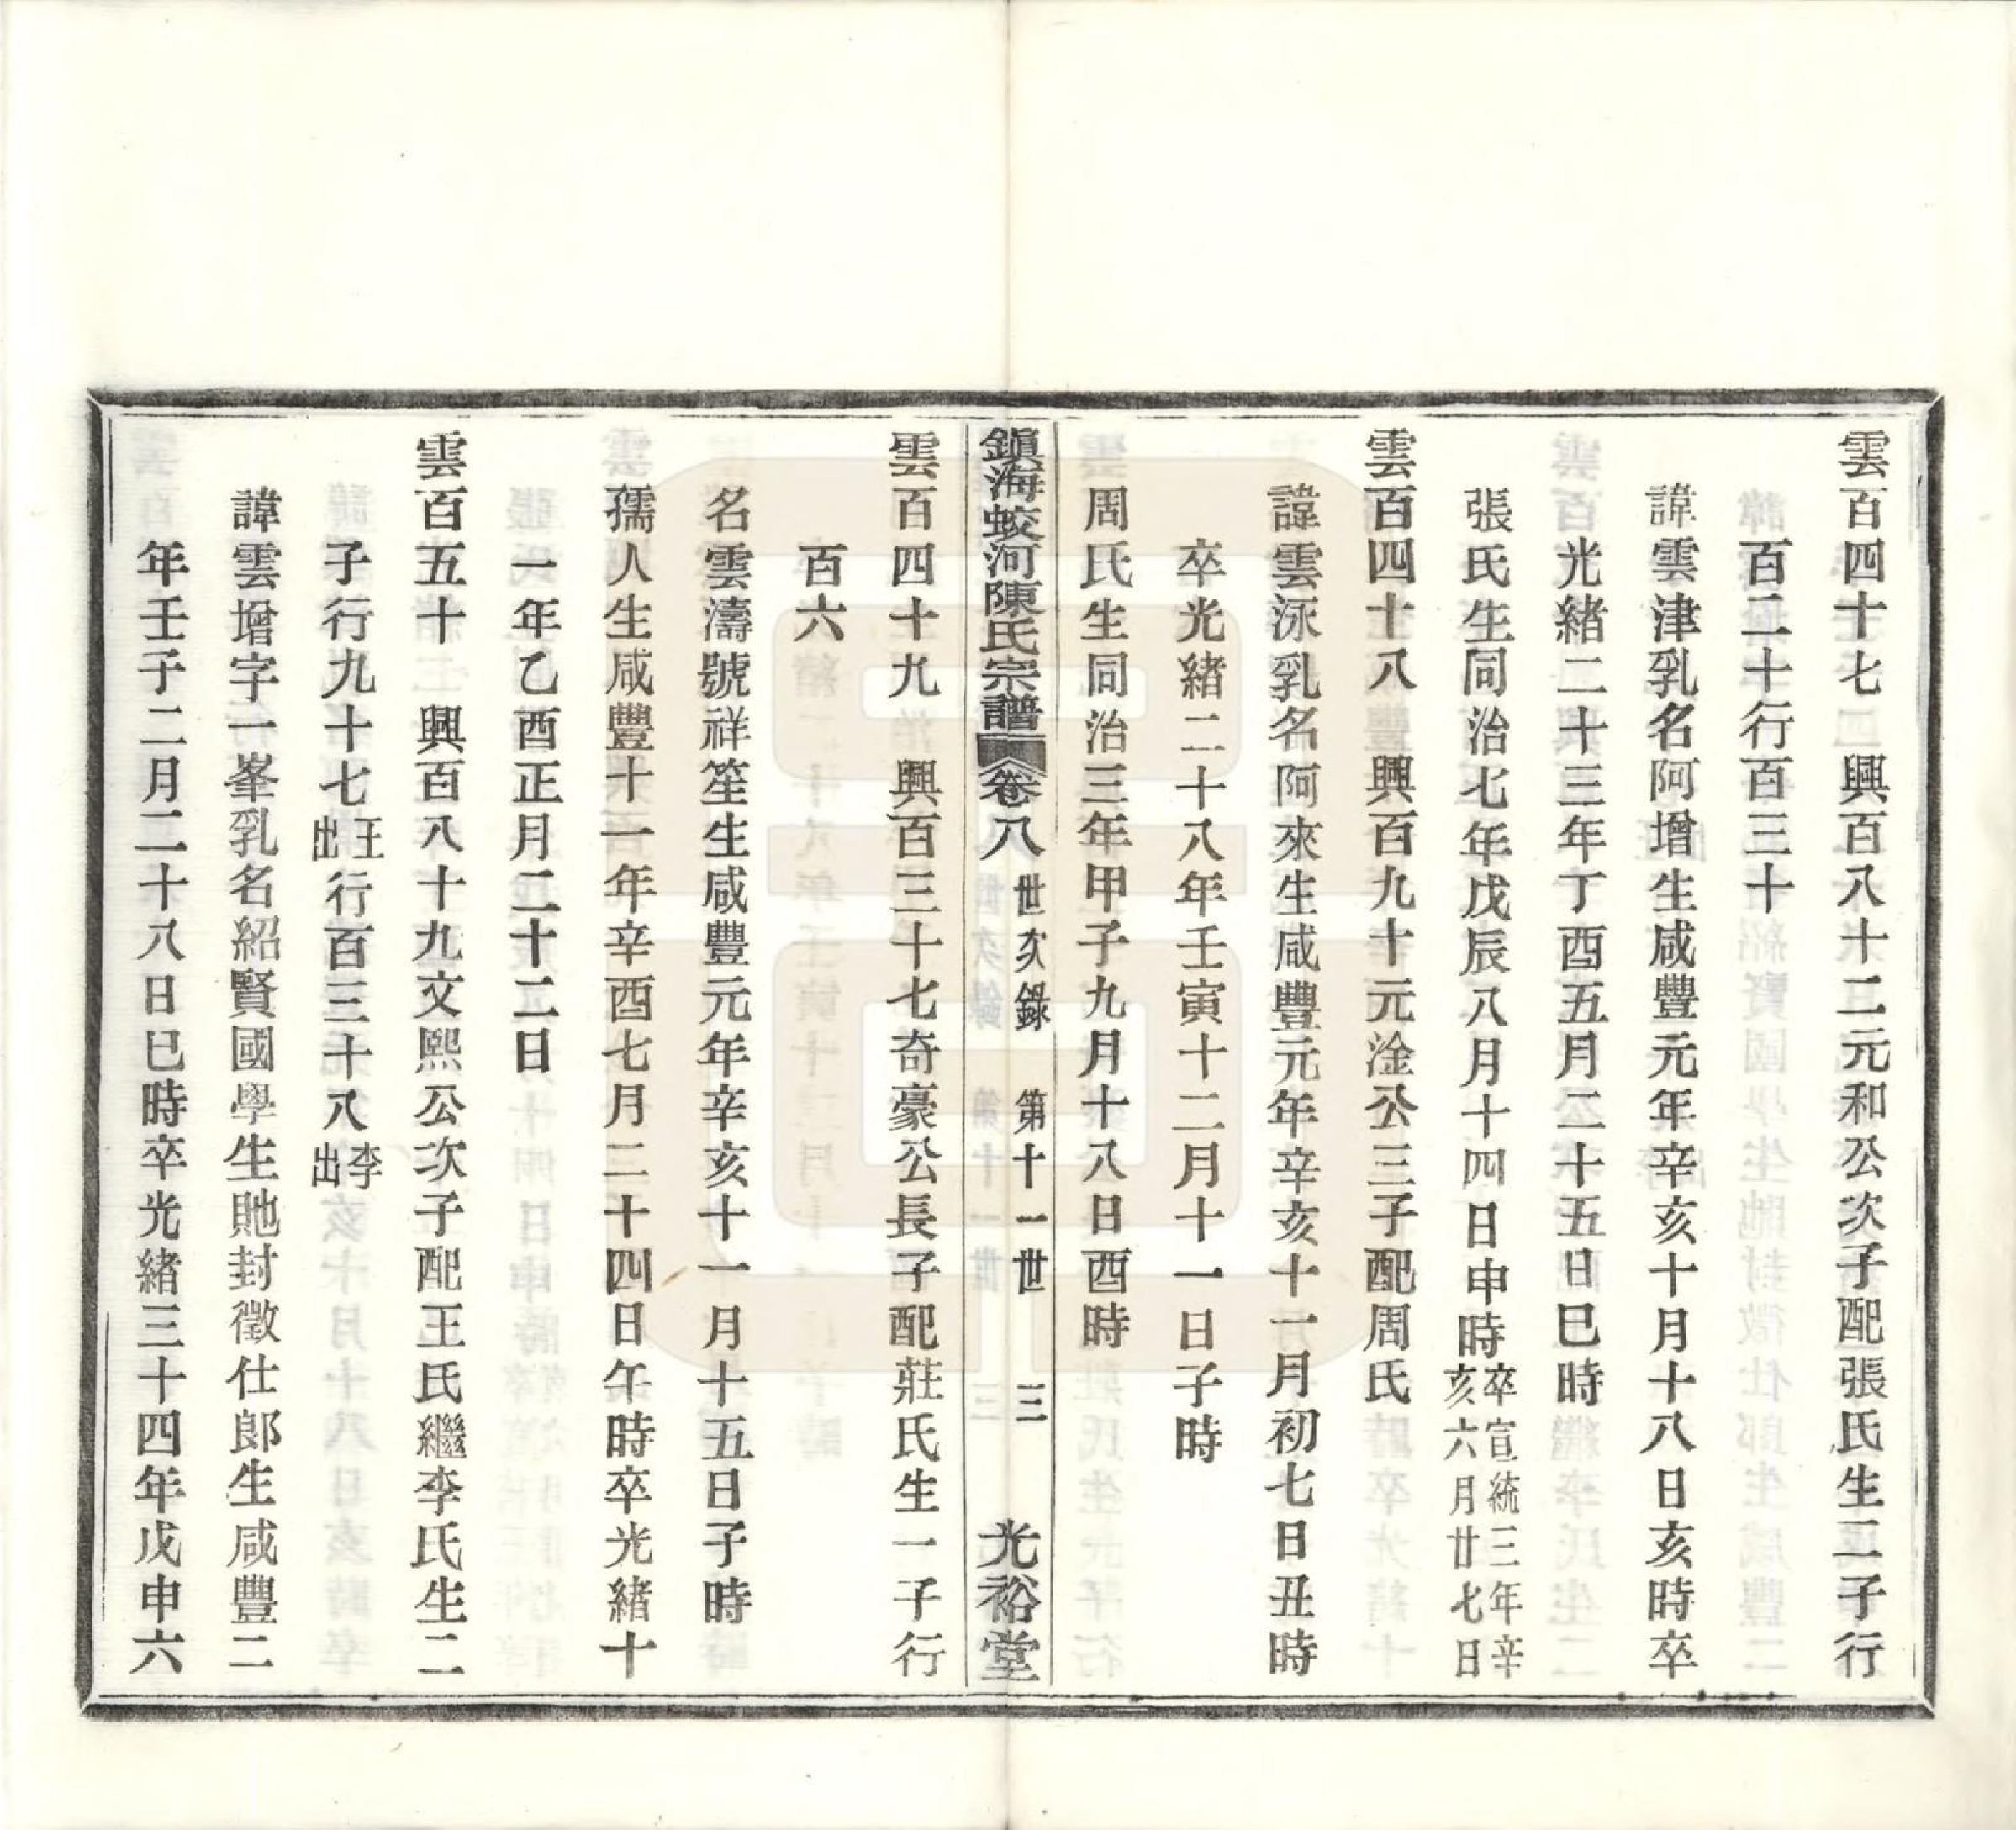 雲百四十七　興百八十二元和公次子配張氏生二子行
百二十行百三十
諱雲津乳名阿增生咸豐元年辛亥十月十八日亥時卒
光緒二十三年丁酉五月二十五日巳時
張氏生同治七年戊辰八月十四日申時卒宣統三年辛亥六月廿七日
雲百四十八　興百九十元淦公三子配周氏
諱雲泳乳名阿來生咸豐元年辛亥十一月初七日丑時
卒光緒二十八年壬寅十二月十一日子時
周氏生同治三年甲子九月十八日酉時
鎮海蛟河陳氏宗譜　卷八　世次錄　第十一世　三　光裕堂
雲百四十九　興百三十七奇豪公長子配莊氏生一子行
百六
名雲濤號祥笙生咸豐元年辛亥十一月十五日子時
孺人生咸豐十一年辛酉七月二十四日午時卒光緒十
一年乙酉正月二十二日
雲百五十　興百八十九文熙公次子配王氏繼李氏生二
子行九十七王出行百三十八李出
諱雲增字一峯乳名紹賢國學生貤封徵仕郎生咸豐二
年壬子二月二十八日巳時卒光緒三十四年戊申六